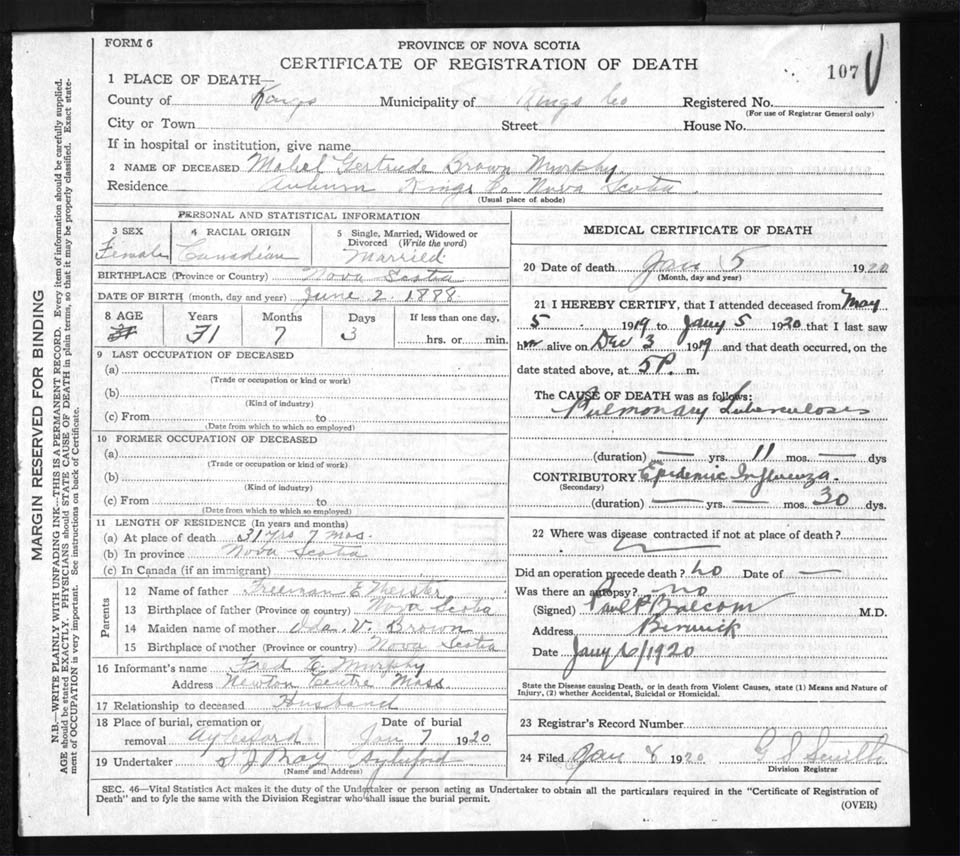 FORM 6
PROVINCE OF NOVA SCOTIA
CERTIFICATE OF REGISTRATION OF DEATH
107
1 PLACE OF DEATH—
County of Kings Municipality of Kings Co Registered No.
(For use of Registrar General only)
City or Town Street House No.
If in hospital or institution, give name
2 NAME OF DECEASED Mabel Gertrude Brown Murphy
Residence Auburn Kings Co Nova Scotia
(Usual place of abode)
PERSONAL AND STATISTICAL INFORMATION
3 SEX 4 RACIAL ORIGIN 5 Single, Married, Widowed or
Divorced (Write the word)
Female Canadian Married
BIRTHPLACE (Province or Country) Nova Scotia
DATE OF BIRTH (month, day and year) June 2 1888
8 AGE Years Months Days If less than one day,
31 7 3 hrs. or min.
9 LAST OCCUPATION OF DECEASED
(a)
(Trade or occupation or kind or work)
(b)
(Kind of industry)
(c) From to
(Date from which to which so employed)
10 FORMER OCCUPATION OF DECEASED
(a)
(Trade or occupation or kind of work)
(b)
(Kind of industry)
(c) From to
(Date from which to which so employed)
11 LENGTH OF RESIDENCE (In years and months)
(a) At place of death 31 yrs 7 mos.
(b) In province Nova Scotia
(c) In Canada (if an immigrant)
Parents
12 Name of father Freeman E
13 Birthplace of father (Province or country) Nova Scotia
14 Maiden name of mother Ida V. Brown
15 Birthplace of mother (Province or country) Nova Scotia
16 Informant's name Fred C. Murphy
Address Newton Centre Mass.
17 Relationship to deceased Husband
18 Place of burial, cremation or Date of burial
removal Aylesford Jan 7 1920
19 Undertaker Aylesford
(Name and Address)
MEDICAL CERTIFICATE OF DEATH
20 Date of death Jan 5 1920
(Month, day and year)
21 I HEREBY CERTIFY, that I attended deceased from May
5 1919 to Jany 5 1920 that I last saw
her alive on Dec 3 1919 and that death occurred, on the
date stated above, at 5 P. m.
The CAUSE OF DEATH was as follows:
Pulmonary Tuberculosis
(duration) — yrs. 11 mos. — dys
CONTRIBUTORY Epidemic Influenza
(Secondary)
(duration) — yrs. — mos. 30 dys.
22 Where was disease contracted if not at place of death?
Did an operation precede death? No Date of —
Was there an autopsy? no
(Signed) Balcom M.D.
Address Berwick
Date Jany 6/1920
State the Disease causing Death, or in death from Violent Causes, state (1) Means and Nature of
Injury, (2) whether Accidental, Suicidal or Homicidal.
23 Registrar's Record Number
24 Filed Jan 8 1920
Division Registrar
SEC. 46—Vital Statistics Act makes it the duty of the Undertaker or person acting as Undertaker to obtain all the particulars required in the "Certificate of Registration of
Death" and to fyle the same with the Division Registrar who shall issue the burial permit. (OVER)
MARGIN RESERVED FOR BINDING
N.B.—WRITE PLAINLY WITH UNFADING INK—THIS IS A PERMANENT RECORD. Every item of information should be carefully supplied.
AGE should be stated EXACTLY. PHYSICIANS should STATE CAUSE OF DEATH in plain terms, so that it may be properly classified. Exact state-
ment of OCCUPATION is very important. See instructions on back of Certificate.